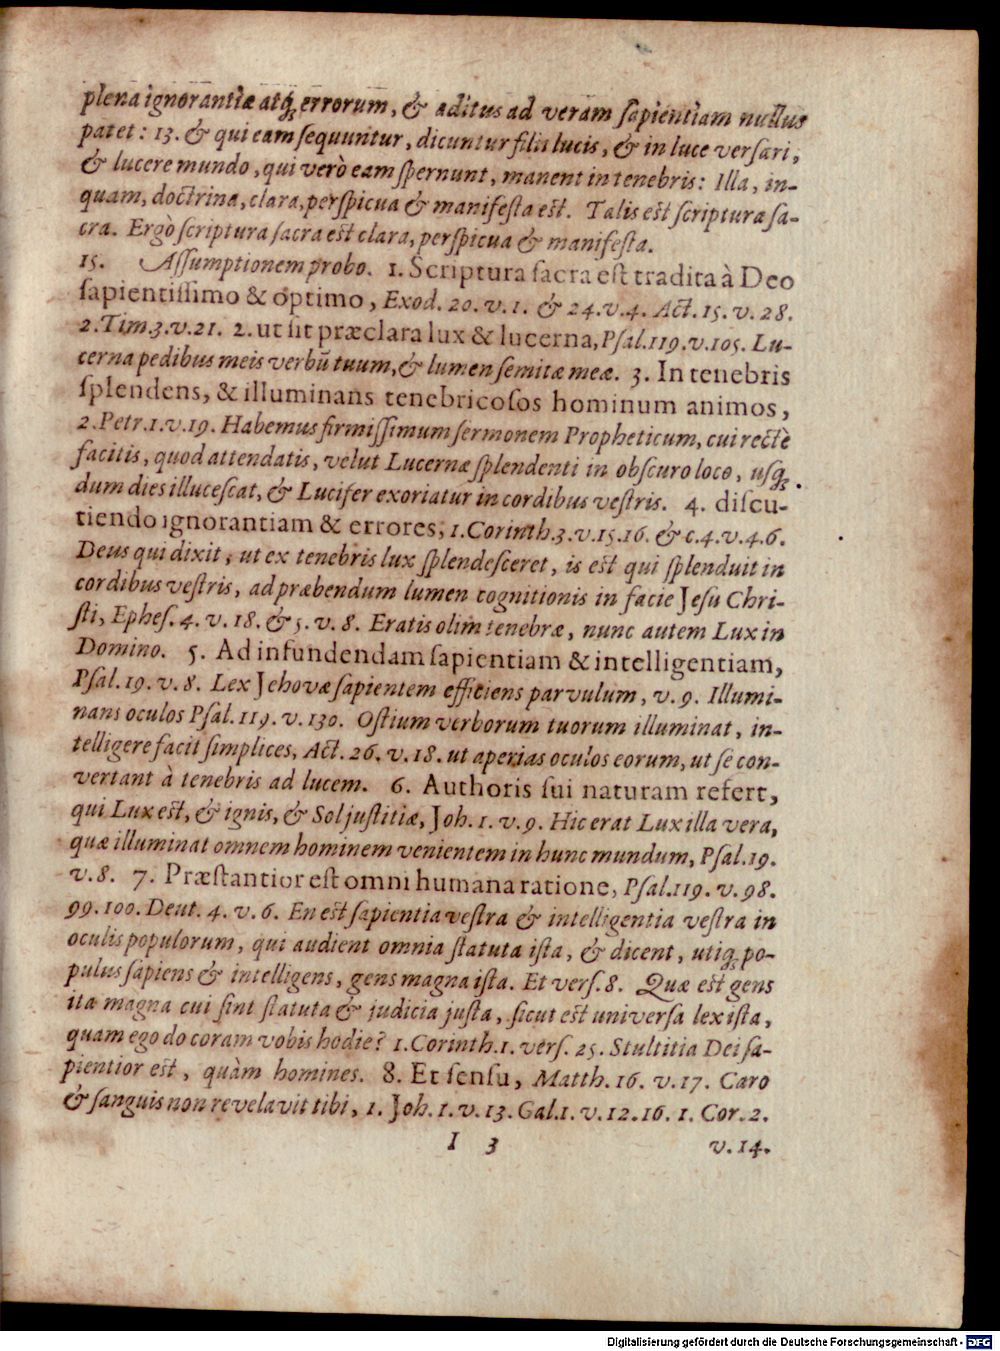 plena ignorantiæ atq; errorum, & aditus ad veram sapientiam nullus
patet: 13. & qui eam sequuntur, dicuntur filii lucis, & in luce versari,
& lucere mundo, qui verò eam spernunt, manent in tenebris: Illa, in-
quam, doctrina, clara, perspicua & manifesta est. Talis est scriptura sa-
cra. Ergò scriptura sacra est clara, perspicua & manifesta.
15. Assumptionem probo. 1. Scriptura sacra est tradita à Deo
sapientissimo & optimo, Exod. 20. v. 1. & 24. v. 4. Act. 15. v. 28.
2. Tim. 3. v. 21. 2. ut sit præclara lux & lucerna, Psal. 119. v. 105. Lu-
cerna pedibus meis verbũ tuum, & lumen semitæ meæ. 3. In tenebris
splendens, & illuminans tenebricosos hominum animos,
2. Petr. 1. v. 19. Habemus firmissimum sermonem Propheticum, cui rectè
facitis, quod attendatis, velut Lucernæ splendenti in obscuro loco, usq;
dum dies illucescat, & Lucifer exoriatur in cordibus vestris. 4. discu-
tiendo ignorantiam & errores, 1. Corinth. 3. v. 15. 16. & c. 4. v. 4. 6.
Deus qui dixit, ut ex tenebris lux splendesceret, is est qui splenduit in
cordibus vestris, ad præbendum lumen cognitionis in facie Jesu Chri-
sti, Ephes. 4. v. 18. & 5. v. 8. Eratis olim tenebræ, nunc autem Lux in
Domino. 5. Ad infundendam sapientiam & intelligentiam,
Psal. 19. v. 8. Lex Jehovæ sapientem efficiens parvulum, v. 9. Illumi-
nans oculos Psal. 119. v. 130. Ostium verborum tuorum illuminat, in-
telligere facit simplices, Act. 26. v. 18. ut aperias oculos eorum, ut se con-
vertant à tenebris ad lucem. 6. Authoris sui naturam refert,
qui Lux est, & ignis, & Sol justitiæ, Joh. 1. v. 9. Hic erat Lux illa vera,
quæ illuminat omnem hominem venientem in hunc mundum, Psal. 19.
v. 8. 7. Præstantior est omni humana ratione, Psal. 119. v. 98.
99. 100. Deut. 4. v. 6. En est sapientia vestra & intelligentia vestra in
oculis populorum, qui audient omnia statuta ista, & dicent, utiq; po-
pulus sapiens & intelligens, gens magna ista. Et vers. 8. Quæ est gens
ita magna cui sint statuta & judicia justa, sicut est universa lex ista,
quam ego do coram vobis hodie? 1. Corinth. 1. vers. 25. Stultitia Dei sa-
pientior est, quàm homines. 8. Et sensu, Matth. 16. v. 17. Caro
& sanguis non revelavit tibi, 1. Joh. 1. v. 13. Gal. 1. v. 12. 16. 1. Cor. 2.
I 3 v. 14.
Digitalisierung gefördert durch die Deutsche Forschungsgemeinschaft - DFG